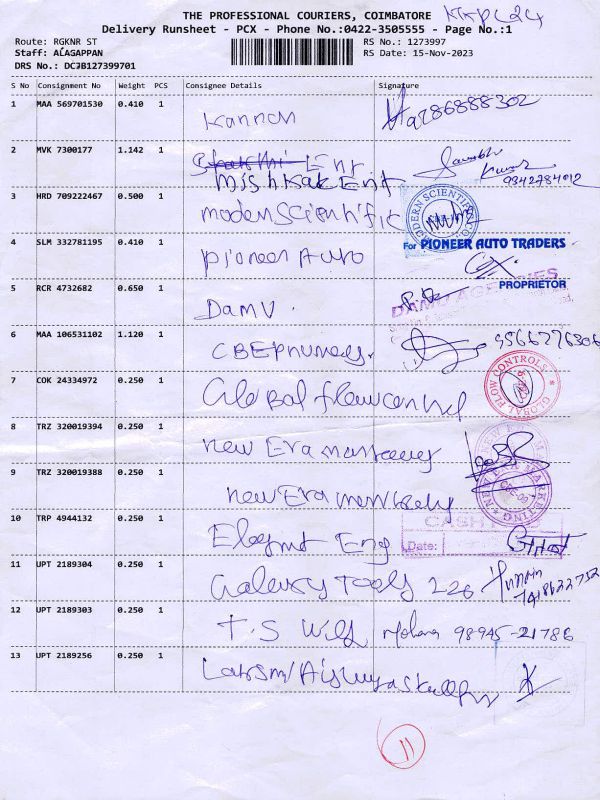 THE PROFESSIONAL COURIERS, COIMBATORE
Delivery Runsheet - PCX - Phone No.:0422-3505555 - Page No.:1
Route: RGKNR ST RS No.: 1273997
Staff: ALAGAPPAN RS Date: 15-Nov-2023
DRS No.: DCJB127399701
S No Consignment No Weight PCS Consignee Details Signature
1 MAA 569701530 0.410 1 Kannan
2 MVK 7300177 1.142 1 Ent
9342784012
Mishkak Ent
3 HRD 709222467 0.500 1 modern scientific
MODERN SCIENTIFIC CO
4 SLM 332781195 0.410 1 pioneer Auto
For PIONEER AUTO TRADERS
PROPRIETOR
5 RCR 4732682 0.650 1 Damu.
6 MAA 106531102 1.120 1 9566276306
7 COK 24334972 0.250 1 Global flow control
GLOBAL FLOW CONTROLS
8 TRZ 320019394 0.250 1 new Era
9 TRZ 320019388 0.250 1 new Era
NEW ERA MARKETING
10 TRP 4944132 0.250 1 Eng
CASH
Date:
11 UPT 2189304 0.250 1 Galaxy Tools 226
12 UPT 2189303 0.250 1 T.S Mohana 98945-21786
13 UPT 2189256 0.250 1
11